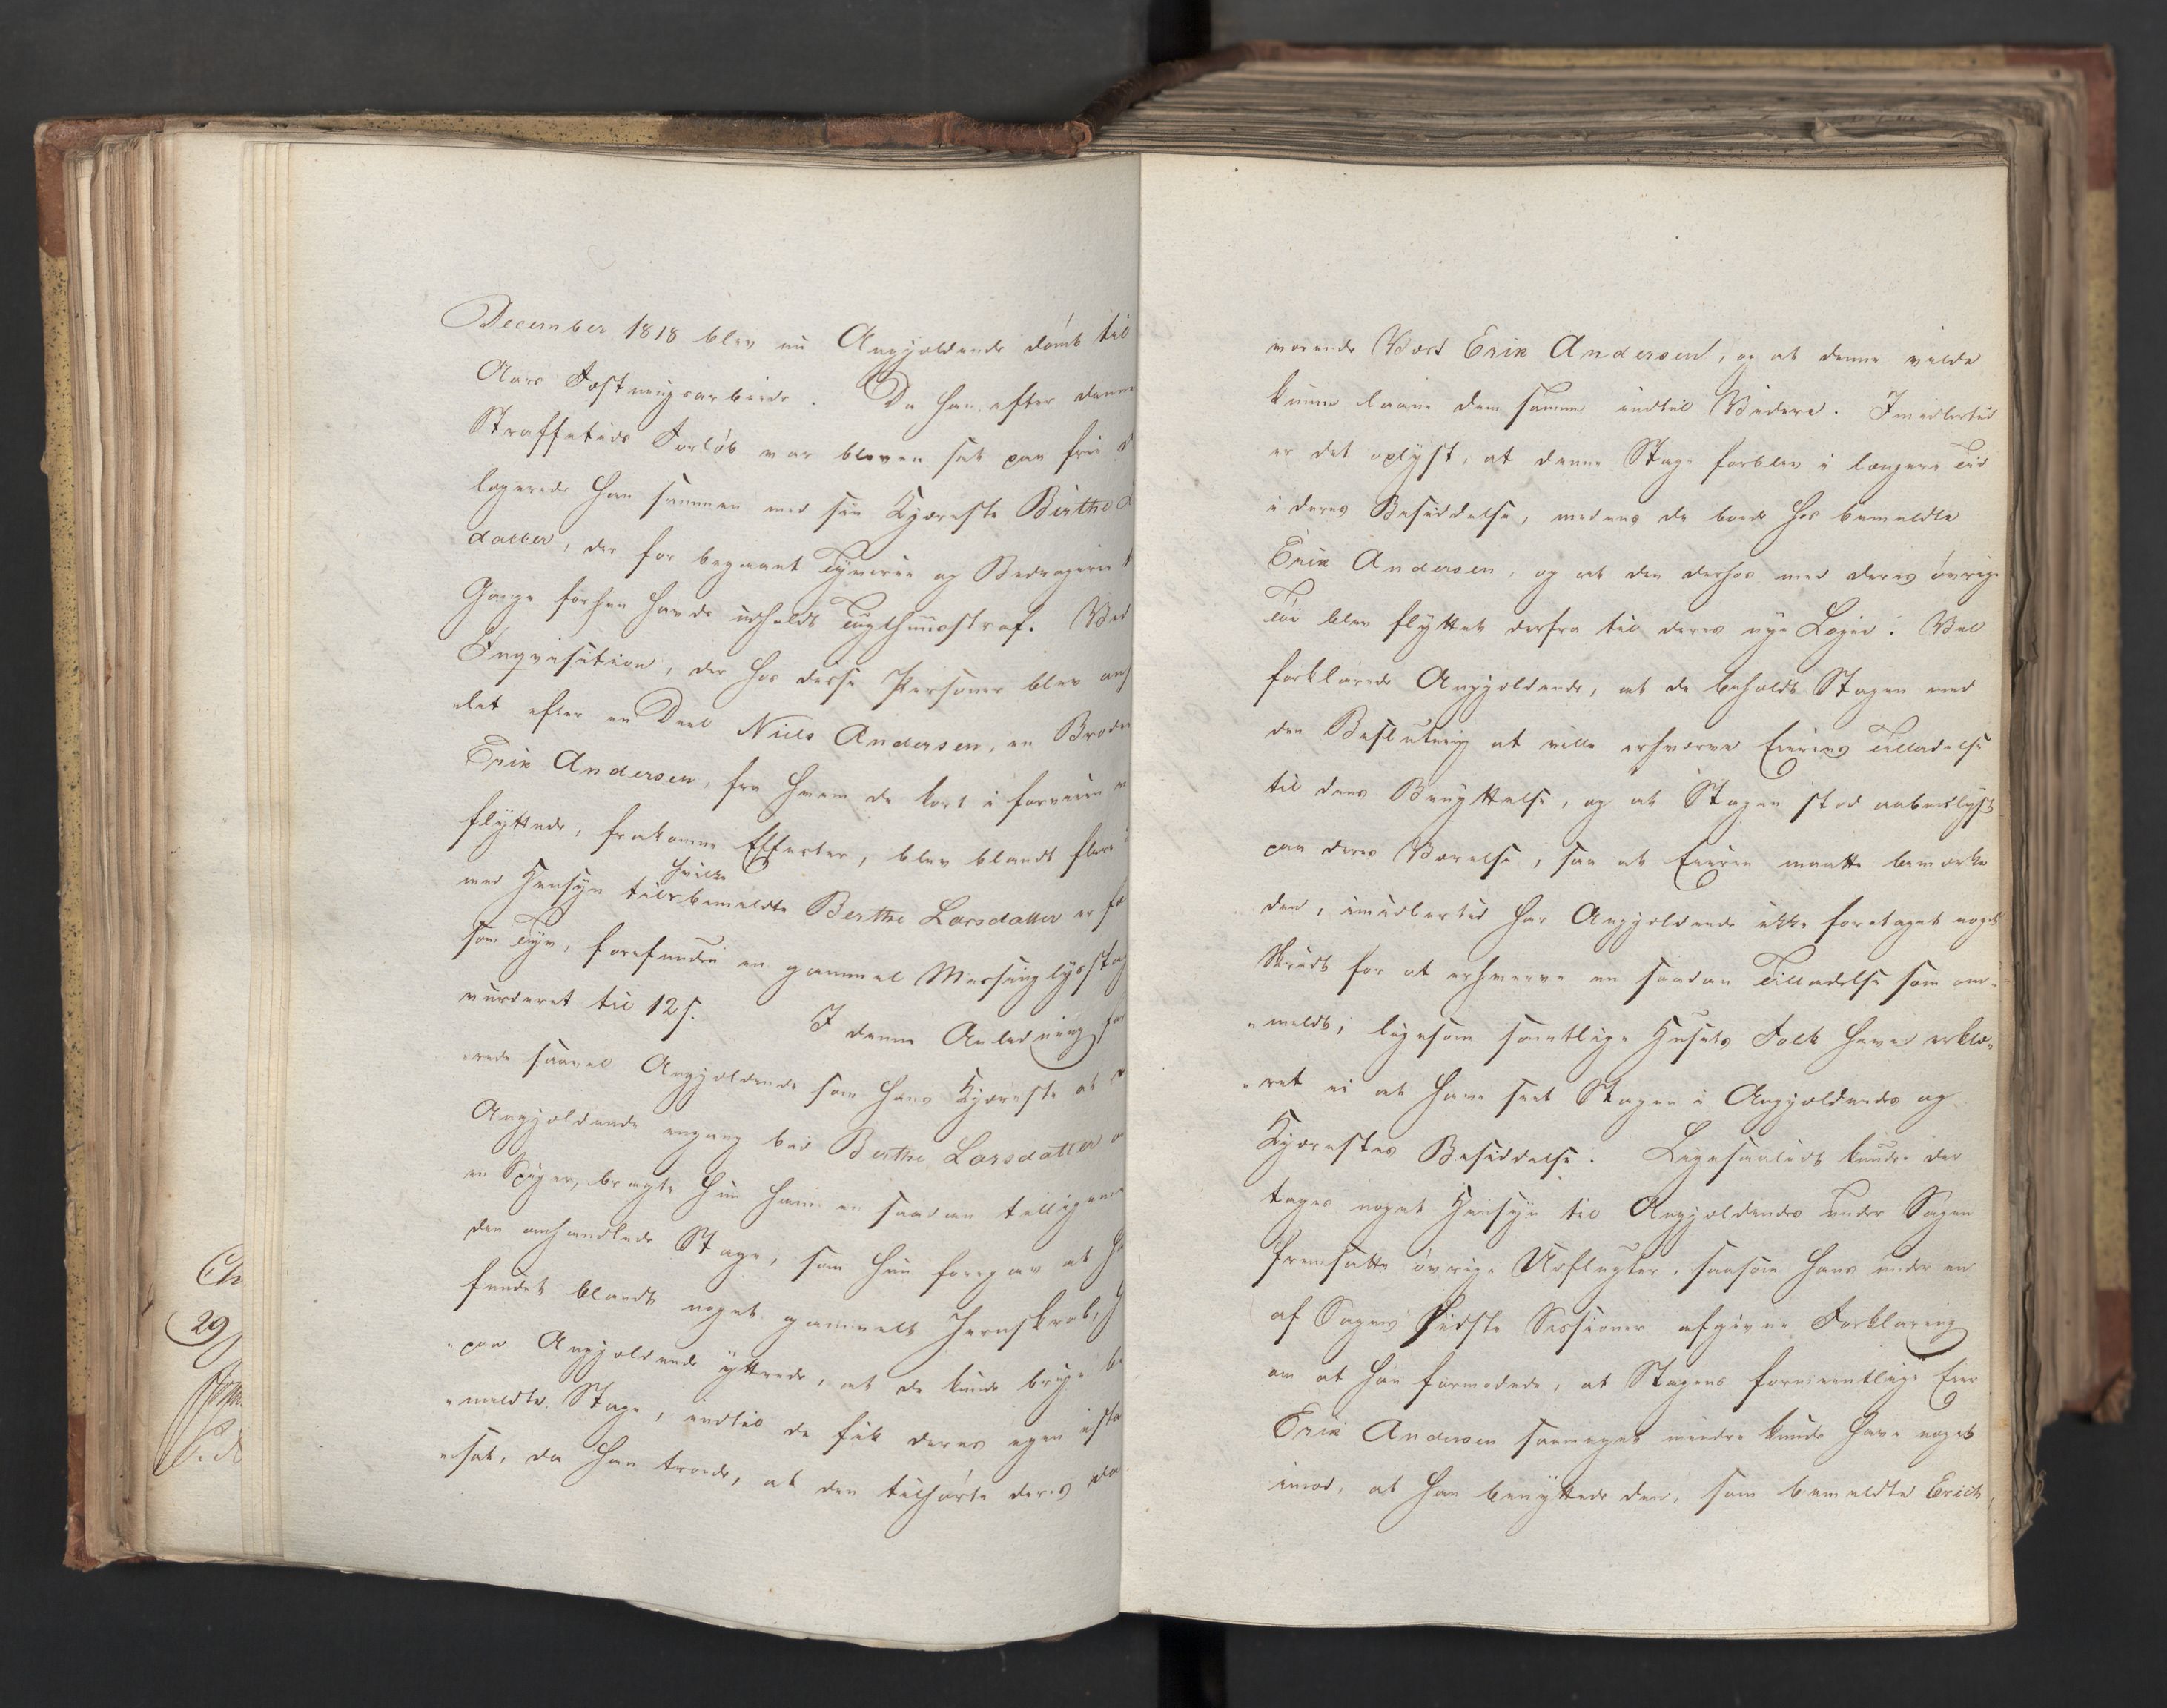 December 1818 blev nu Angjældende dømt til
Aars Fæstningsarbeide. Da han efter denne
Straffetids Forløb var bleven sat paa frie
logerede han sammen med sin Kjæreste Birthe
datter, der for begaaet Tyverie og Bedragerie
Gange forhen havde udholdt Tugthuusstraf. Ved
Inqvisition, der hos disse Personer blev an
slet efter en Deel Niels Andersen, en Broder
Erik Andersen, fra hvem de kort i forveien
flyttede, frakomne Effecter, blev blandt flere
hvilke
med Hensyn til bemeldte Berthe Larsdatter er
som Tyv, forefunden en gammel Messinglysestag
vurderet til 12 s. I denne Anledning for
"rede saavel Angjældende som hans Kjæreste at
Angjældende engang bad Berthe Larsdatter
en Spiger, bragte hun ham en saadan tilligemed
den omhandlede Stage, som hun foregav at
fundet blandt noget gammelt Jernskrab,
"paa Angjældende yttrede, at de kunde bruge be
"meldte Stage, indtil de fik deres egen
"sat, da han troede, at den tilhørte deres da
værende Vært Erik Andersen, og at denne vilde
kunne laane dem samme indtil Videre. Imidlertid
er det oplyst, at denne Stage forblev i længere Tid
i deres Besiddelse, medens de boede hos bemeldte
Erik Andersen, og at den derhos med deres øvrige
Tøi blev flyttet derfra til deres nye Logie. Vel
forklarede Angjældende, at de beholdt Stagen med
den Beslutning at ville erhverve Eierens Tilladelse
til dens Benyttelse, og at Stagen stod aabenlyst
paa deres Værelse, saa at Eieren maatte bemærke
den, imidlertid har Angjældende ikke foretaget noget
Skridt for at erhverve en saadan Tilladelse som om-
"meldt, ligesom samtlige Husets Folk have erklæ-
"ret ei at have seet Stagen i Angjældendes og
Kjærestes Besiddelse. Ligesaalidt kunde der
tages noget Hensyn til Angjældendes under Sagen
fremsatte øvrige Udflugter, saasom hans under en
af Sagens sidste Sessioner afgivne Forklaring
om at han formodede, at Stagens formeentlige Eier
Erik Andersen saameget mindre kunde have noget
imod, at han benyttede den, som bemeldte Erich
Ch
29